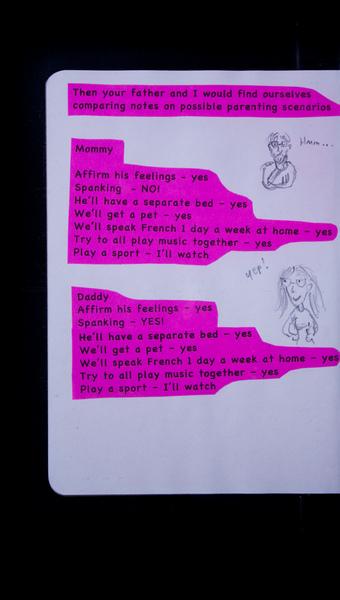 Then your father and I would find ourselves
comparing notes on possible parenting scenarios
Hmm...
Mommy
Affirm his feelings - yes
Spanking - NO!
He'll have a separate bed - yes
We'll get a pet - yes
We'll speak French 1 day a week at home - yes
Try to all play music together - yes
Play a sport - I'll watch
yep!
Daddy
Affirm his feelings - yes
Spanking - YES!
He'll have a separate bed - yes
We'll get a pet - yes
We'll speak French 1 day a week at home - yes
Try to all play music together - yes
Play a sport - I'll watch